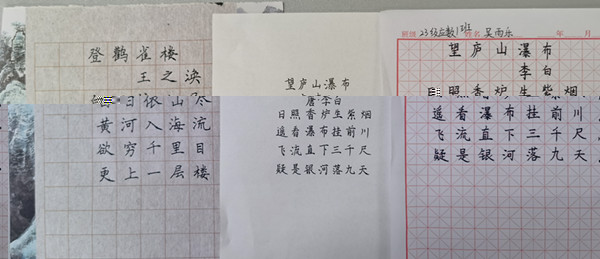 登鹳雀楼
王之涣
白日依山尽
黄河入海流
欲穷千里目
更上一层楼
望庐山瀑布
唐 李白
日照香炉生紫烟
遥看瀑布挂前川
飞流直下三千尺
疑是银河落九天
班级 23级应数1班 姓名 吴雨乐 年 月
望庐山瀑布
李白
日照香炉生紫烟
遥看瀑布挂前川
飞流直下三千尺
疑是银河落九天